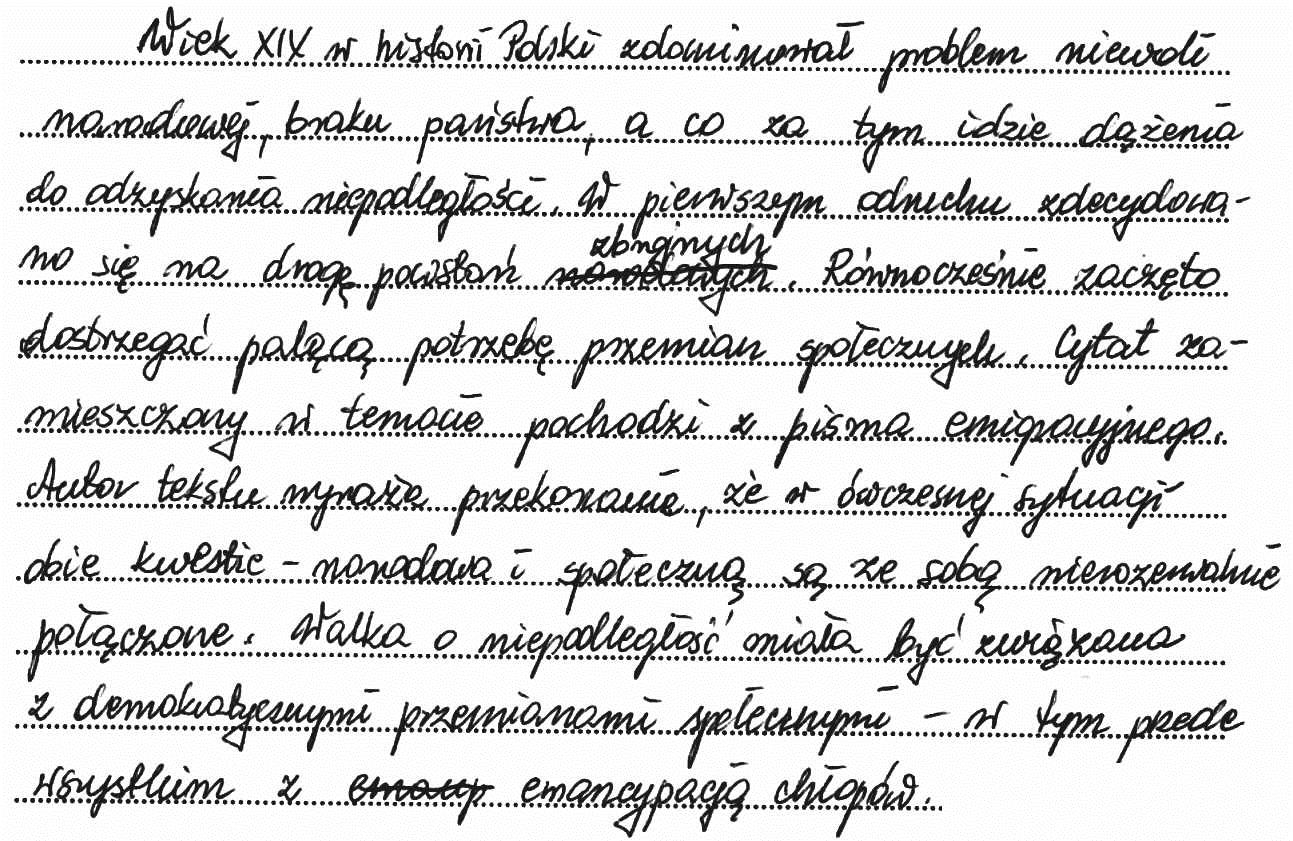 Wiek XIX w historii Polski zdominował problem niewoli
narodowej, braku państwa, a co za tym idzie dążenia
do odzyskania niepodległości. W pierwszym odruchu zdecydowa-
no się na drogę powstań zbrojnych. Równocześnie zaczęto
dostrzegać palącą potrzebę przemian społecznych. Cytat za-
mieszczony w temacie pochodzi z pisma emigracyjnego.
Autor tekstu wyraża przekonanie, że w ówczesnej sytuacji
obie kwestie – narodowa i społeczną są ze sobą nierozerwalnie
połączone. Walka o niepodległość miała być związana
z demokratycznymi przemianami społecznymi – w tym przede
wszystkim z emancypacją chłopów.